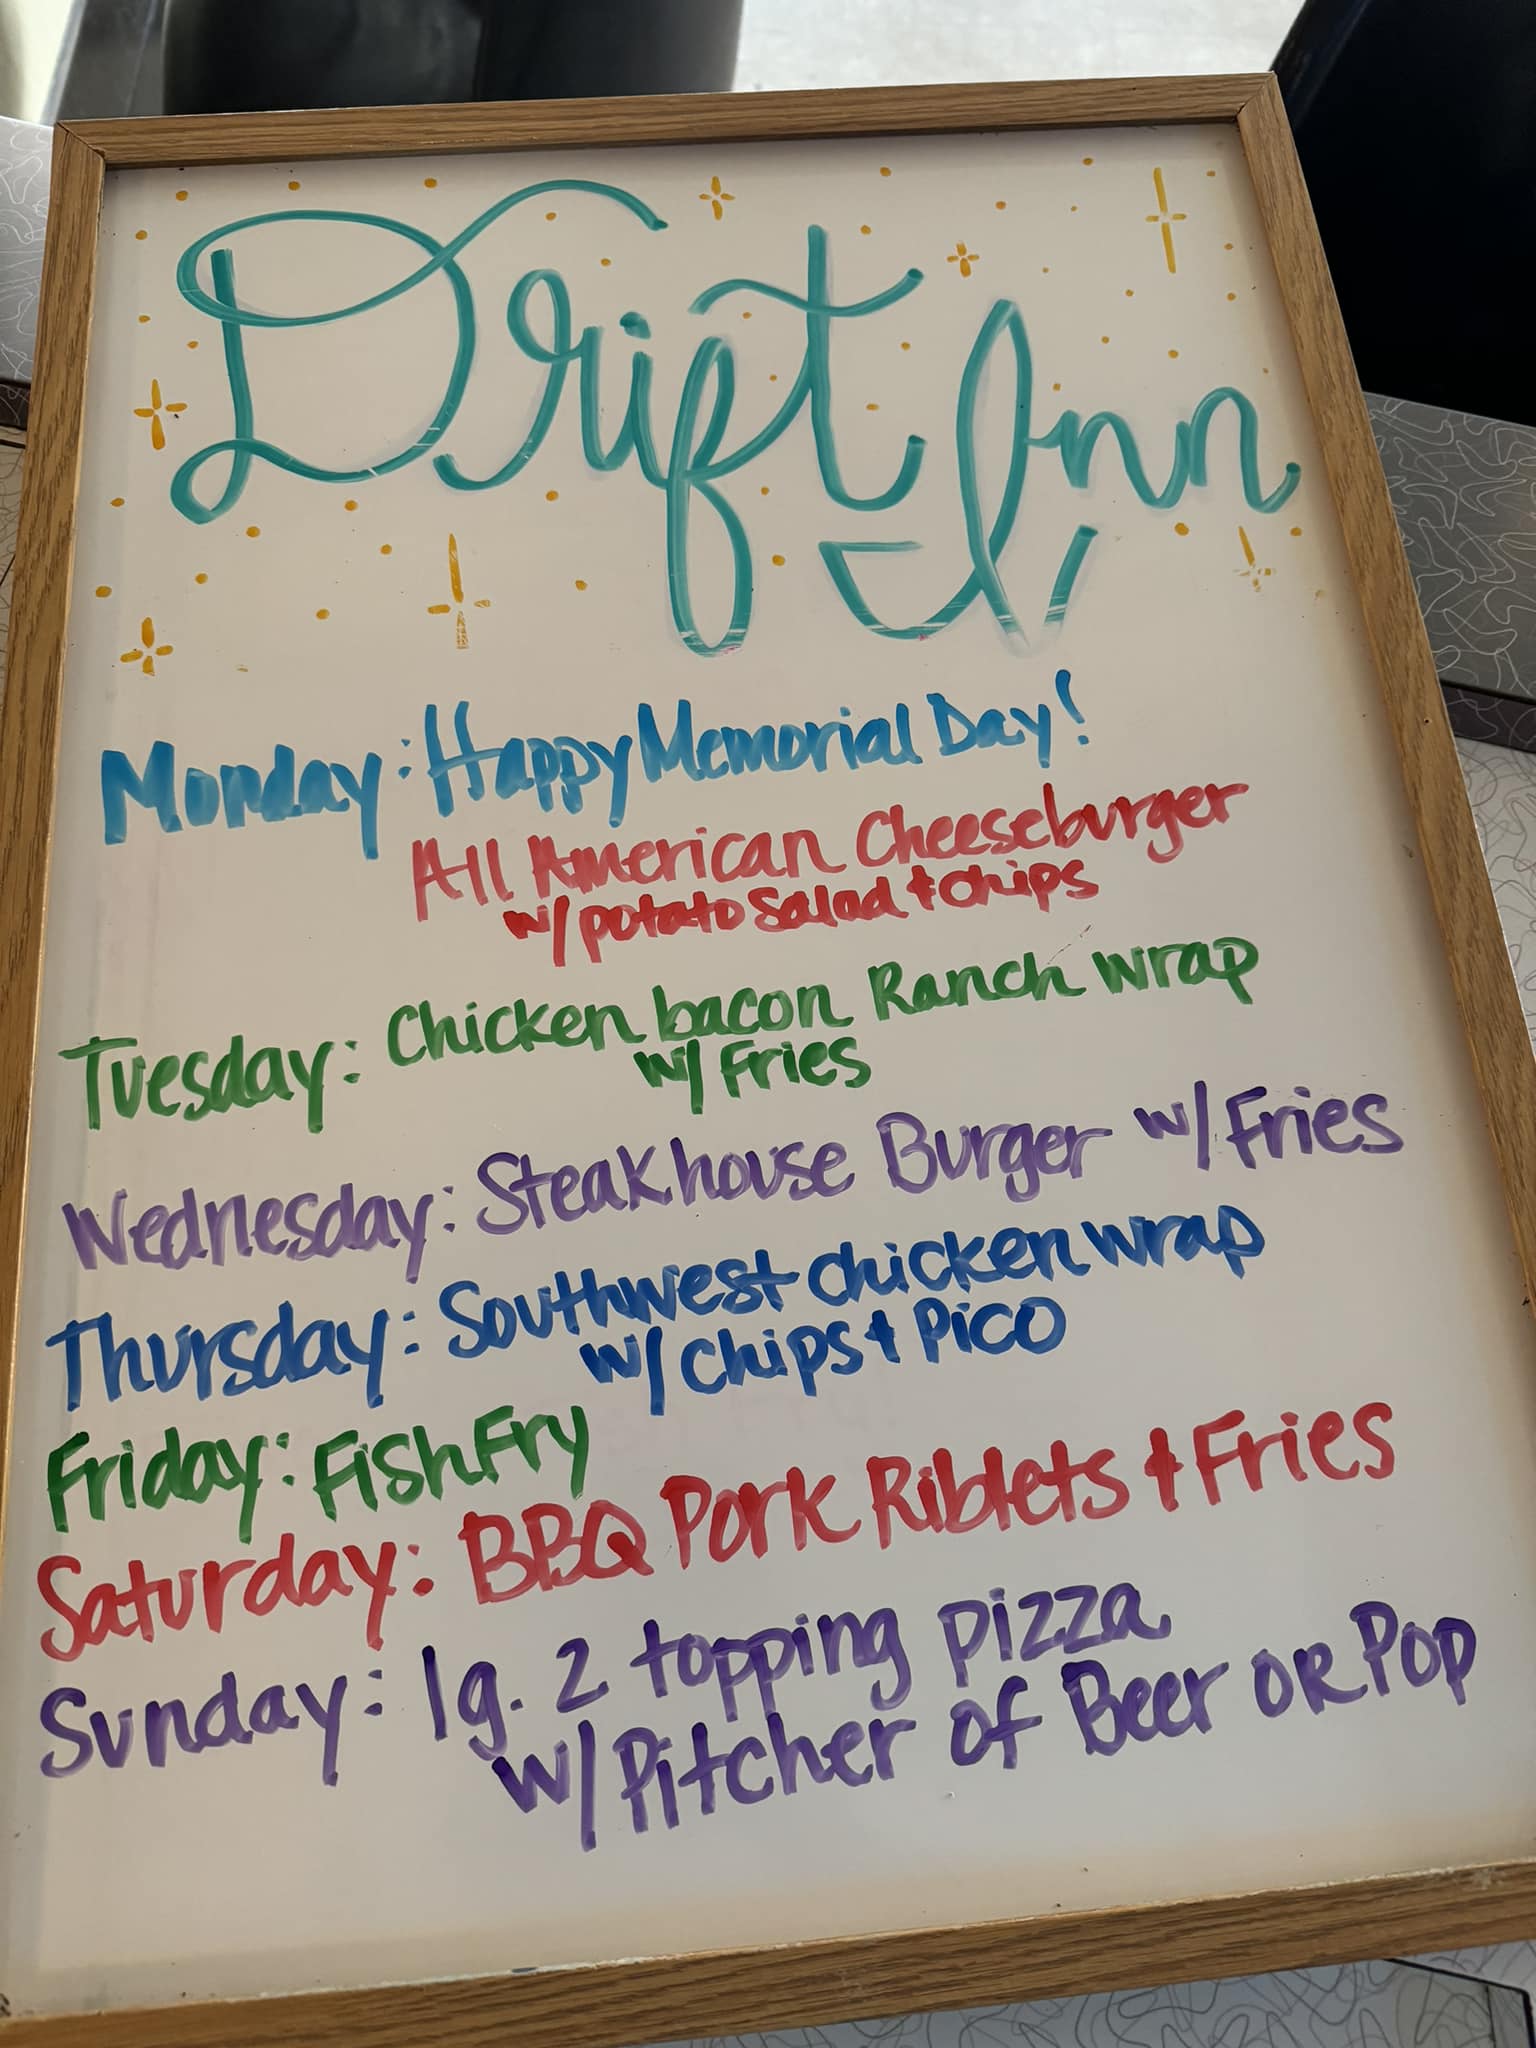 Drift Inn
Monday: Happy Memorial Day!
All American Cheeseburger
w/ potato Salad + chips
Tuesday: Chicken bacon Ranch wrap
w/ Fries
Wednesday: Steakhouse Burger w/ Fries
Thursday: Southwest chicken wrap
w/ chips + Pico
Friday: Fish Fry
Saturday: BBQ Pork Riblets + Fries
Sunday: lg. 2 topping pizza
w/ Pitcher of Beer or Pop